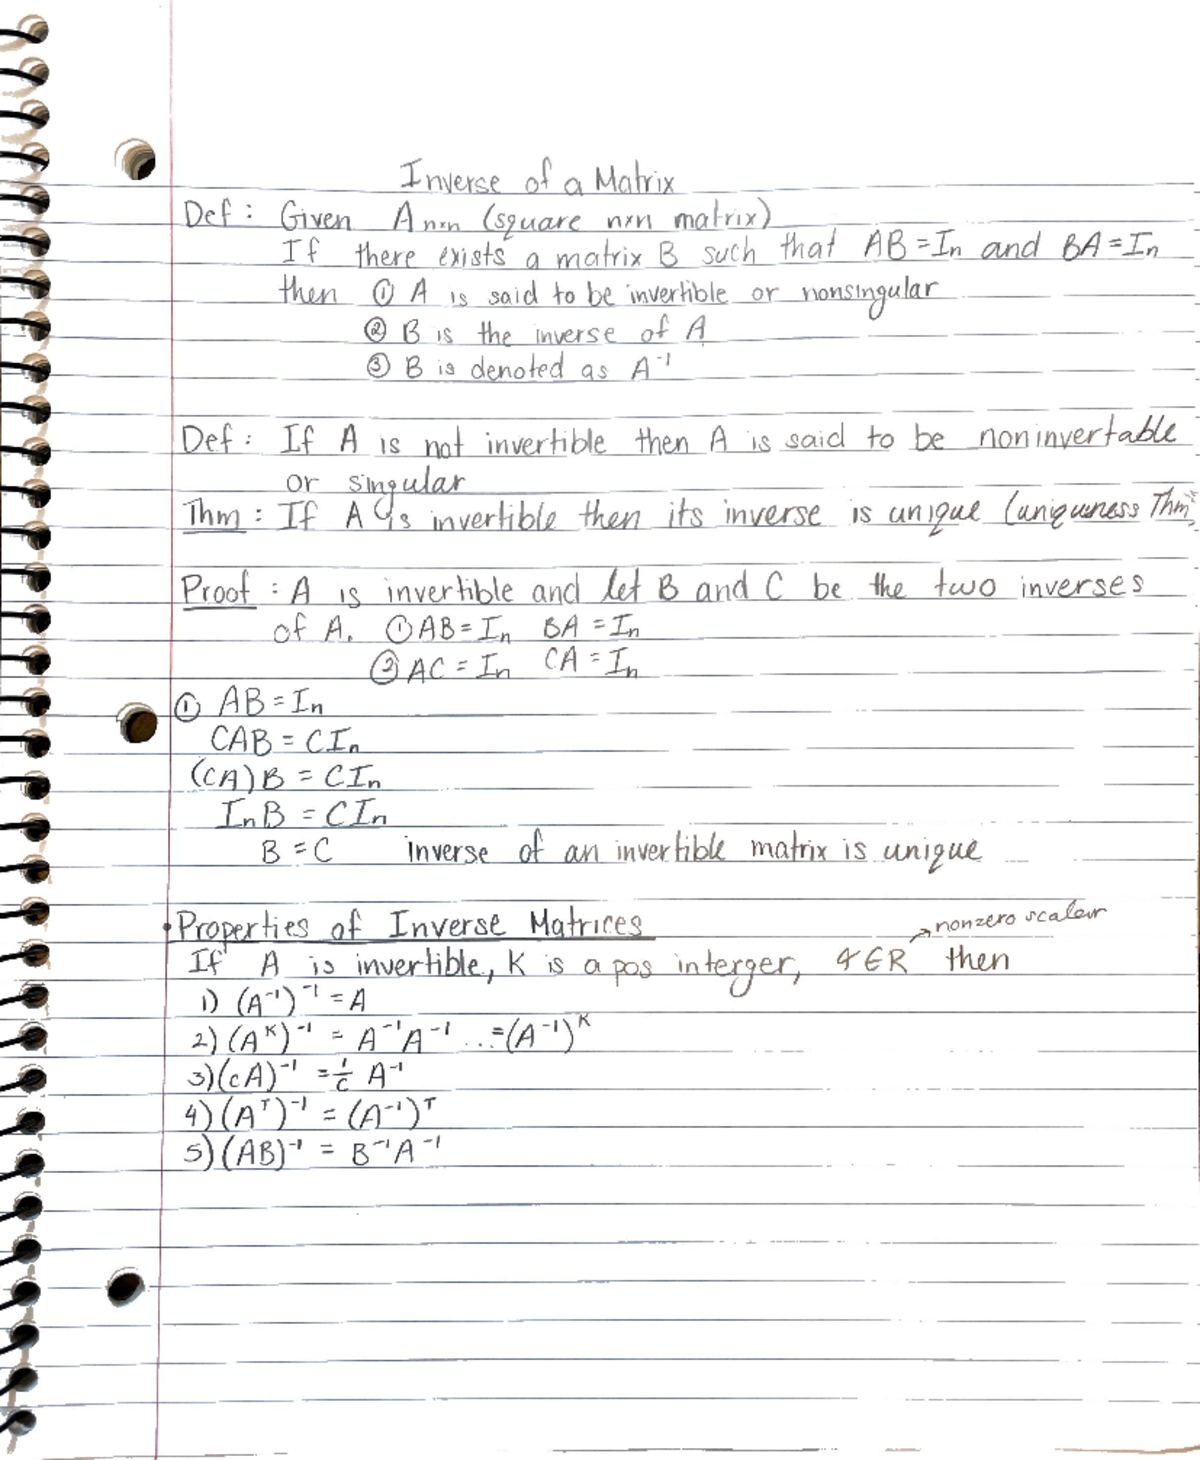 Inverse of a Matrix
Def : Given An×n (square n×n matrix)
If there exists a matrix B such that AB = In and BA = In
then ① A is said to be invertible or nonsingular
② B is the inverse of A
③ B is denoted as A⁻¹
Def : If A is not invertible then A is said to be noninvertable
or singular
Thm : If A is invertible then its inverse is unique (uniqueness Thm
Proof : A is invertible and let B and C be the two inverses
of A. ① AB = In BA = In
② AC = In CA = In
① AB = In
CAB = CIn
(CA)B = CIn
InB = CIn
B = C inverse of an invertible matrix is unique
Properties of Inverse Matrices
→ nonzero scalar
If A is invertible, K is a pos interger, ∈R then
1) (A⁻¹)⁻¹ = A
2) (Aᴷ)⁻¹ = A⁻¹A⁻¹ ...=(A⁻¹)ᴷ
3) (cA)⁻¹ = 1/c A⁻¹
4) (Aᵀ)⁻¹ = (A⁻¹)ᵀ
5) (AB)⁻¹ = B⁻¹A⁻¹